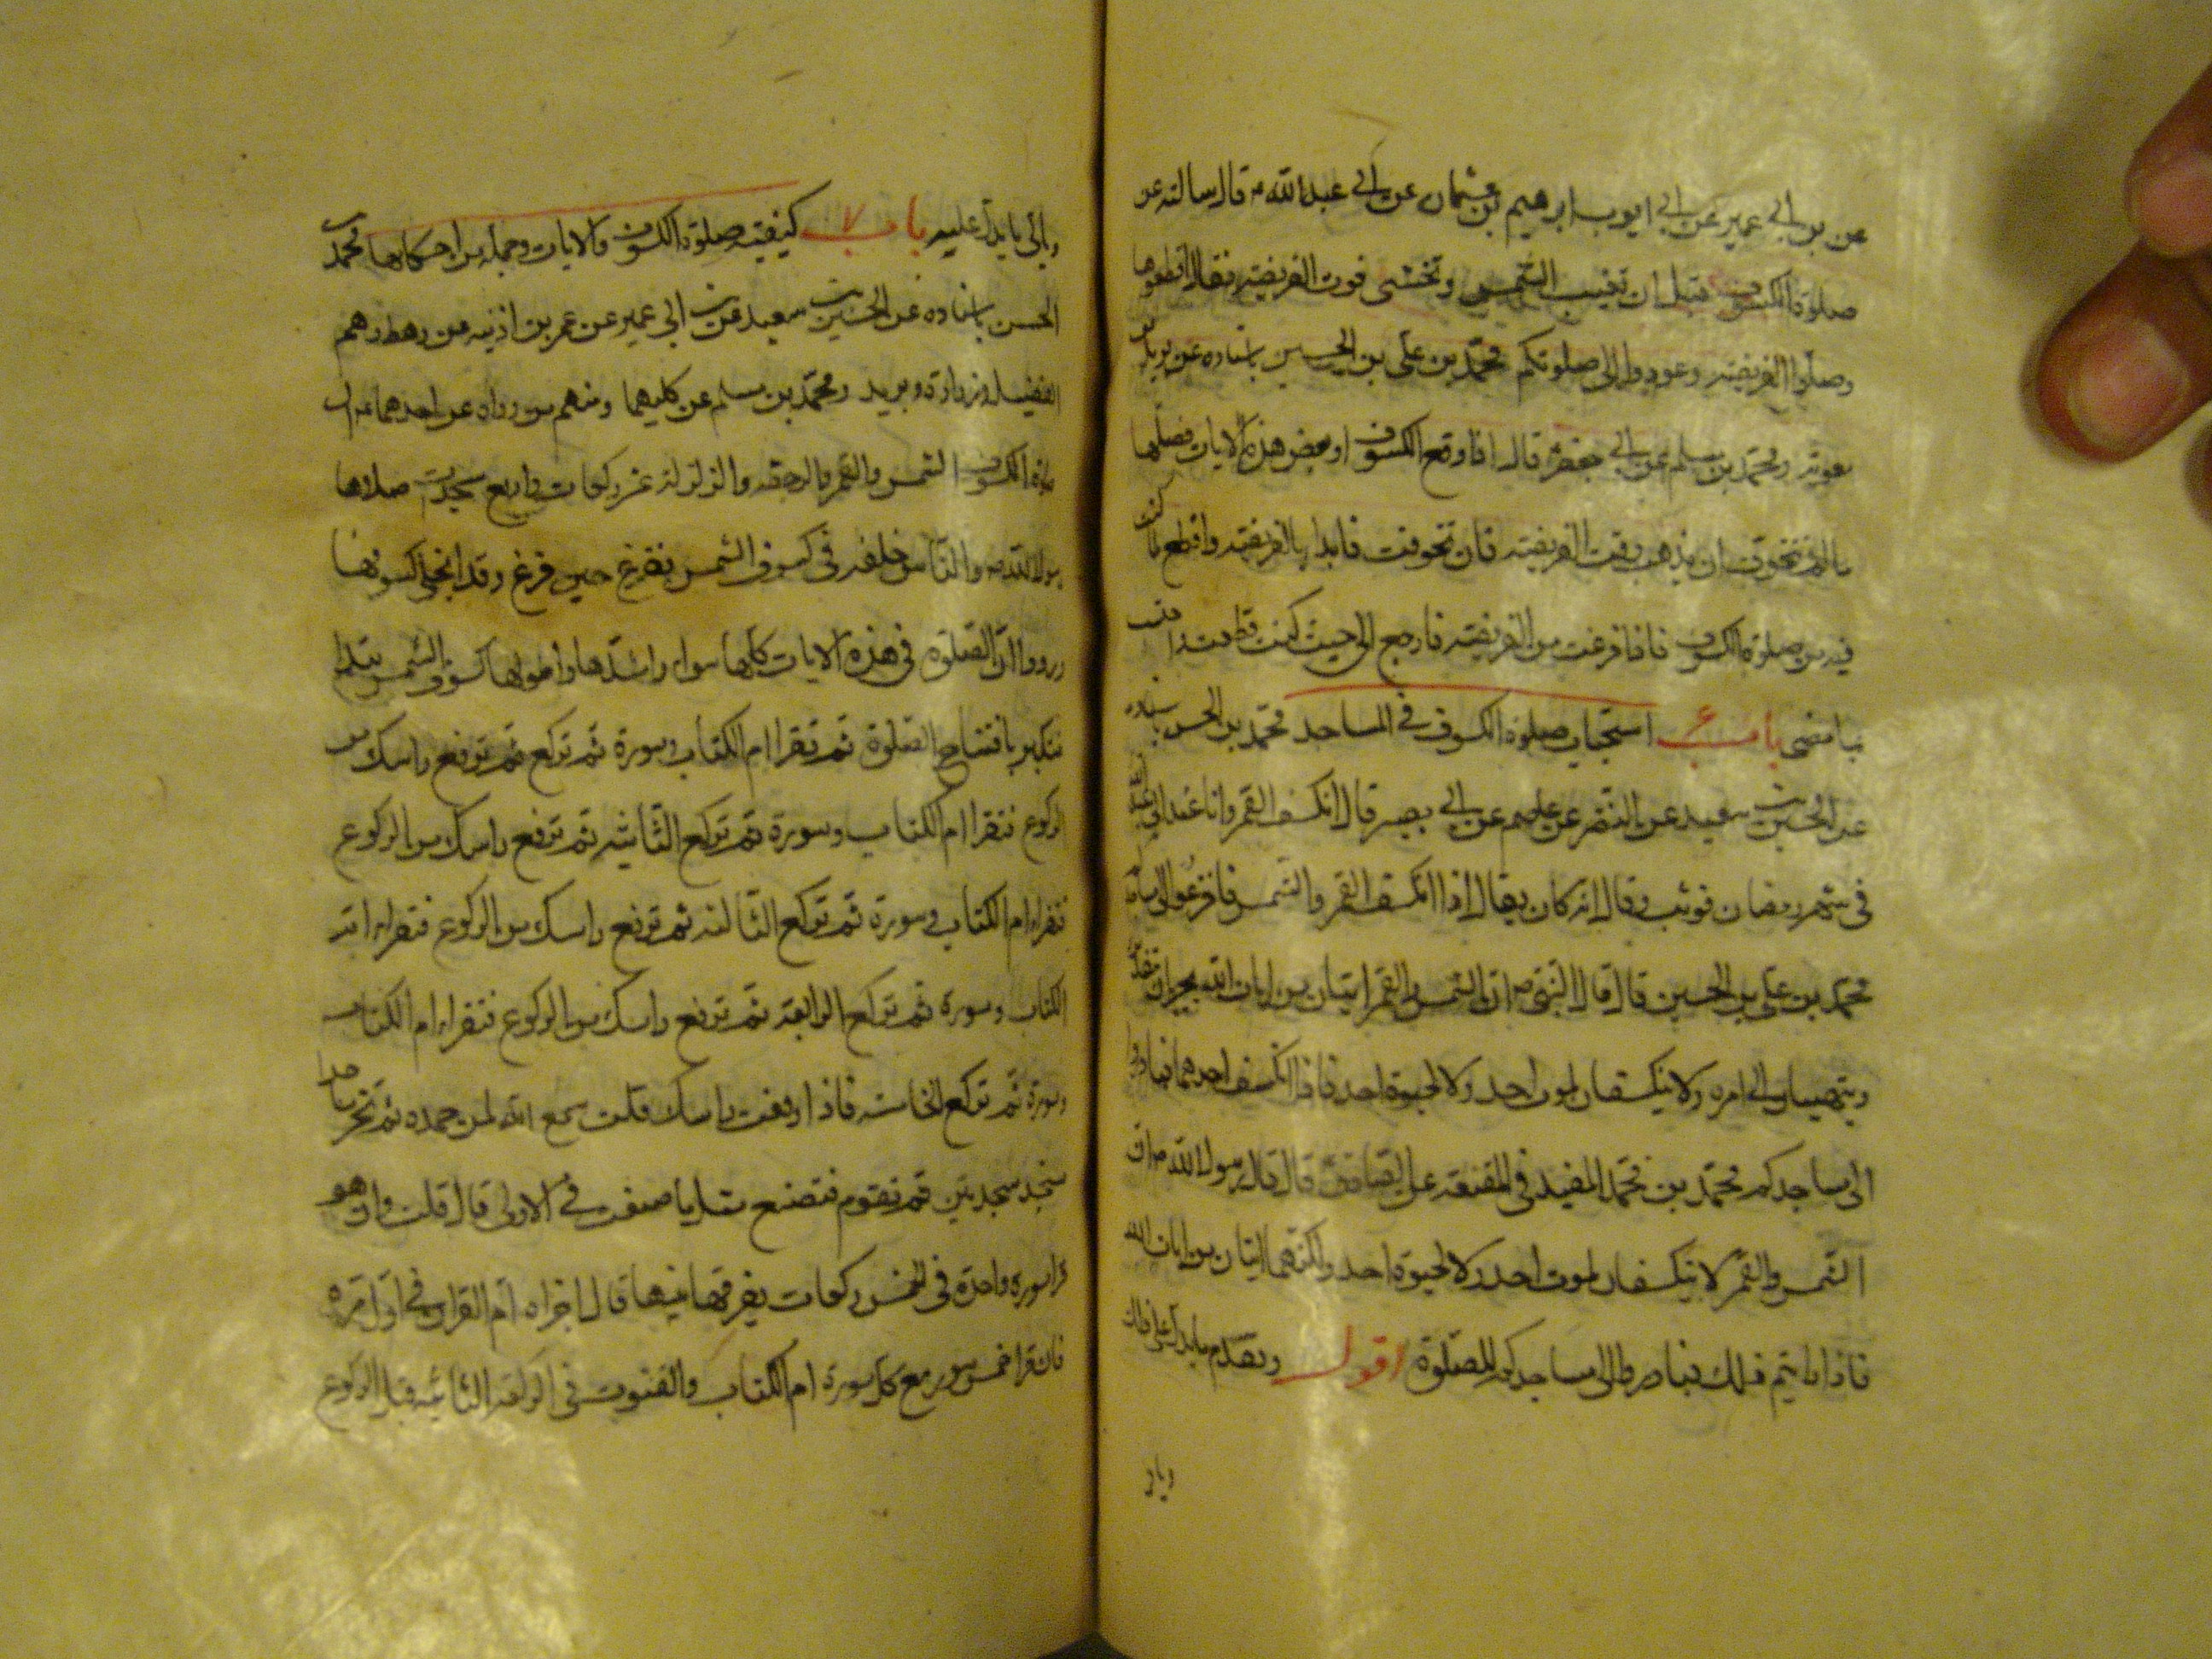 عن بن ابي عمير عن ابي ايوب ابرهيم بن عثمان عن ابي عبد الله ع قال سالته عن
صلوة الكسوف قبل ان تغيب الشمس وتخشى فوت الفريضة فقال اقطعوها
وصلوا الفريضة وعودوا الى صلوتكم محمد بن علي بن الحسين باسناده عن بريد بن
معوية ومحمد بن مسلم عن ابي جعفر ع قال اذا وقع الكسوف او بعض هذه الايات فصلها
ما لم تتخوف ان يذهب وقت الفريضة فان تخوفت فابدا بالفريضة واقطع ما كنت
فيه من صلوة الكسوف فاذا فرغت من الفريضة فارجع الى حيث كنت قطعت واحتسب
بما مضى باب ٦ استحباب صلوة الكسوف في المساجد محمد بن الحسن باسناده
عن الحسين بن سعيد عن النضر عن عاصم عن ابي بصير قال انكسف القمر وانا عند ابي عبد الله
في شهر رمضان فوثب وقال انه كان يقال اذا انكسف القمر والشمس فافزعوا الى مساجدكم
محمد بن علي بن الحسين قال قال النبي ص ان الشمس والقمر ايتان من ايات الله يجريان بتقديره
وينتهيان الى امره ولا ينكسفان لموت احد ولا لحيوة احد فاذا انكسف احدهما فبادروا
الى مساجدكم محمد بن محمد المفيد في المقنعة عن الصادق ع قال قال رسول الله ص ان
الشمس والقمر لا ينكسفان لموت احد ولا لحيوة احد ولكنهما ايتان من ايات الله
فاذا رايتم ذلك فبادروا الى مساجدكم للصلوة اقول وتقدم ما يدل على ذلك
وياتي
وياتي ما يدل عليه باب ٧ كيفية صلوة الكسوف والايات وجملة من احكامها محمد بن
الحسن باسناده عن الحسين بن سعيد عن بن ابي عمير عن عمر بن اذينة عن رهط وهم
الفضيل وزرارة وبريد ومحمد بن مسلم عن كليهما ومنهم من رواه عن احدهما ان
صلوة الكسوف الشمس والقمر والرجفة والزلزلة عشر ركعات واربع سجدات صلاها
رسول الله ص والناس خلفه في كسوف الشمس ففرغ حين فرغ وقد انجلى كسوفها
ورووا ان الصلوة في هذه الايات كلها سواء واشدها واطولها كسوف الشمس تبدا
فتكبر بافتتاح الصلوة ثم تقرا ام الكتاب وسورة ثم تركع ثم ترفع راسك من
الركوع فتقرا ام الكتاب وسورة ثم تركع الثانية ثم ترفع راسك من الركوع
فتقراء ام الكتاب وسورة ثم تركع الثالثة ثم ترفع راسك من الركوع فتقراء ام
الكتاب وسورة ثم تركع الرابعة ثم ترفع راسك من الركوع فتقراء ام الكتاب
وسورة ثم تركع الخامسة فاذا رفعت راسك قلت سمع الله لمن حمده ثم تخر ساجدا
فتسجد سجدتين ثم تقوم فتصنع مثل ما صنعت في الاولى قال قلت وان هو
قرا سورة واحدة في الخمس ركعات يفرقها بينها قال اجزاه ام القران في اول مرة
فان قرا خمس سور مع كل سورة ام الكتاب والقنوت في الركعة الثانية قبل الركوع